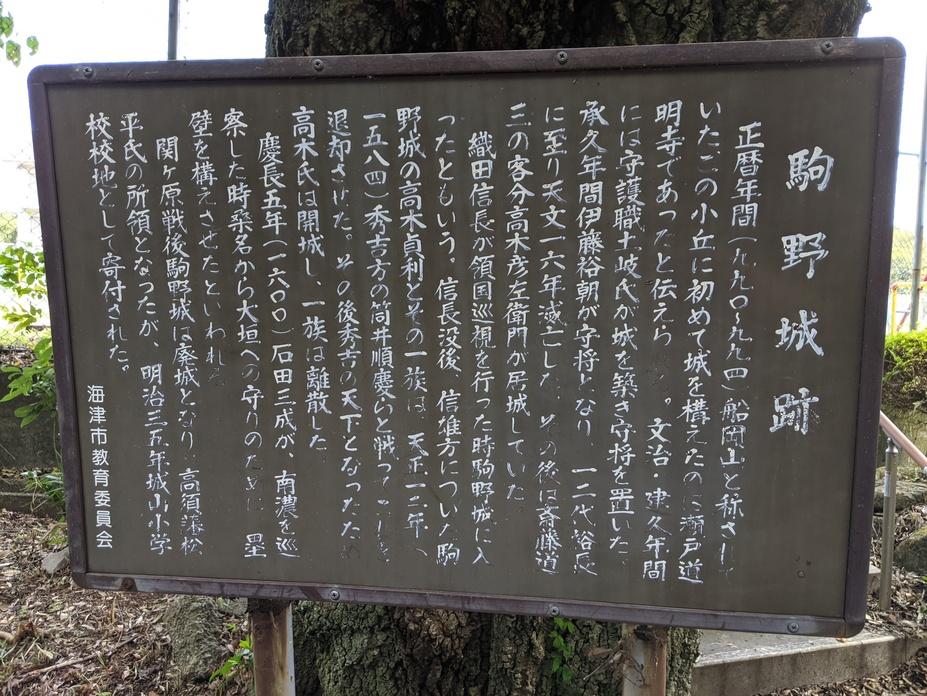 駒野城跡
正暦年間（九九〇〜九九四）船岡山と称され
いたこの小丘に初めて城を構えたのは瀬戸道
明寺であったと伝えら。文治・建久年間
には守護職土岐氏が城を築き守将を置いた
承久年間伊藤裕朝が守将となり、一二代裕辰
に至り天文一六年滅亡した。その後は斎藤道
三の客分高木彦左衛門が居城していた
織田信長が領国巡視を行った時駒野城に入
ったともいう。信長没後、信雄方についた駒
野城の高木貞利とその一族は、天正一二年（
一五八四）秀吉方の筒井順慶らと戦っ
退却させた。その後秀吉の天下となったため
高木氏は開城し、一族は離散した
慶長五年（一六〇〇）石田三成が、南濃を巡
察した時桑名から大垣への守りのために塁
壁を構えさせたといわれる
関ヶ原戦後駒野城は廃城となり、高須藩松
平氏の所領となったが、明治三五年城山小学
校校地として寄付された。
海津市教育委員会